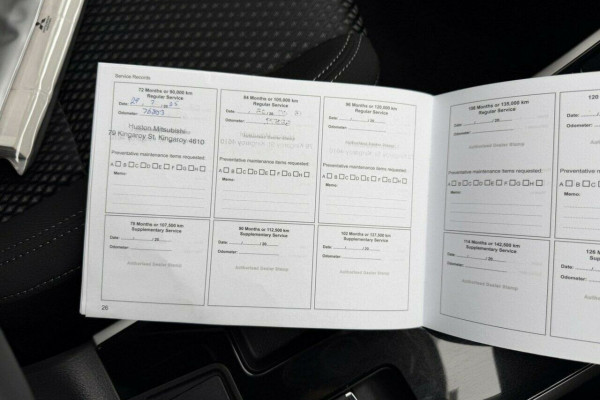 Service Records
72 Months or 90,000 km
Regular Service
Date
Odometer:
Huston Mitsubishi
79 Kingaroy St, Kingaroy 4610
Preventative maintenance items requested:
A B C D E F G H
Memo:
84 Months or 105,000 km
Regular Service
Date
Odometer:
Authorised Dealer Stamp
Preventative maintenance items requested:
A B C D E F G H
Memo:
96 Months or 120,000 km
Regular Service
Date / / 20
Odometer:
Authorised Dealer Stamp
Preventative maintenance items requested:
A B C D E F G H
Memo:
78 Months or 97,500 km
Supplementary Service
Date / / 20
Odometer:
Authorised Dealer Stamp
90 Months or 112,500 km
Supplementary Service
Date / / 20
Odometer:
Authorised Dealer Stamp
102 Months or 127,500 km
Supplementary Service
Date / / 20
Odometer:
Authorised Dealer Stamp
26
108 Months or 135,000 km
Regular Service
Date / / 20
Odometer:
Authorised Dealer Stamp
Preventative maintenance items requested:
A B C D E F G H
Memo:
114 Months or 142,500 km
Supplementary Service
Date / / 20
Odometer:
Authorised Dealer Stamp
120
Date
Odometer:
Preventative
A B C
Memo:
126
Date
Odometer: